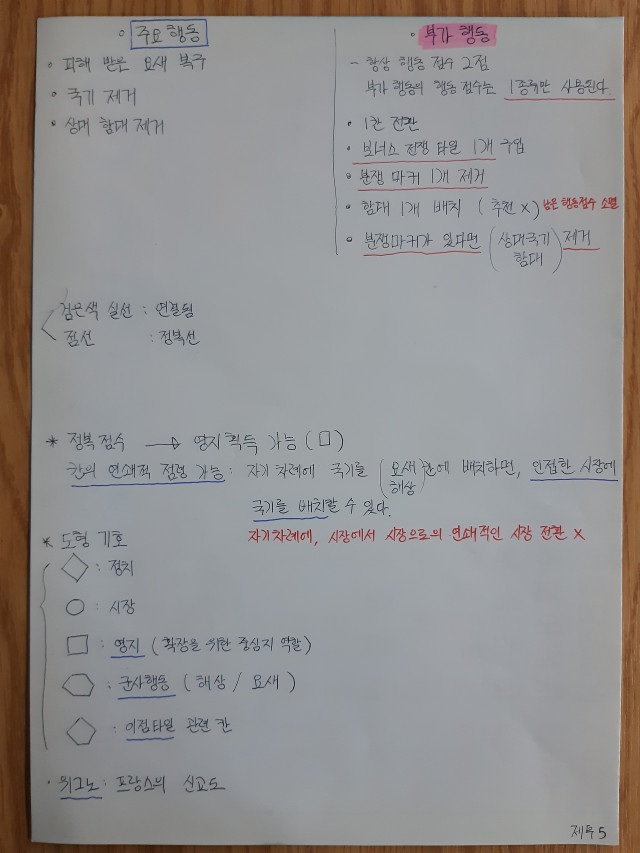 • 주요 행동
• 피해 받은 요새 복구
• 국기 제거
• 상대 함대 제거
• 부가 행동
- 항상 행동 점수 2점
부가 행동의 행동 점수는 1종류만 사용된다
• 1칸 전환
• 보너스 전쟁 타일 1개 구입
• 분쟁 마커 1개 제거
• 함대 1개 배치 ( 추전 X ) 남은 행동점수 소멸
• 분쟁마커가 있다면 (상대국기 함대) 제거
검은색 실선 : 연결됨
점선 : 정복선
* 정복 점수 → 영지 획득 가능 (□)
칸의 연쇄적 점령 가능 : 자기 차례에 국기를 (요새 해상) 칸에 배치하면, 인접한 시장에
국기를 배치할 수 있다.
자기차례에, 시장에서 시장으로의 연쇄적인 시장 전환 X
* 도형 기호
◇ : 정치
○ : 시장
□ : 영지 ( 확장을 위한 중심지 역할 )
⬡ : 군사행동 ( 해상 / 요새 )
⬠ : 이점타일 관련 칸
• 위그노 : 프랑스의 신교도
제투 5